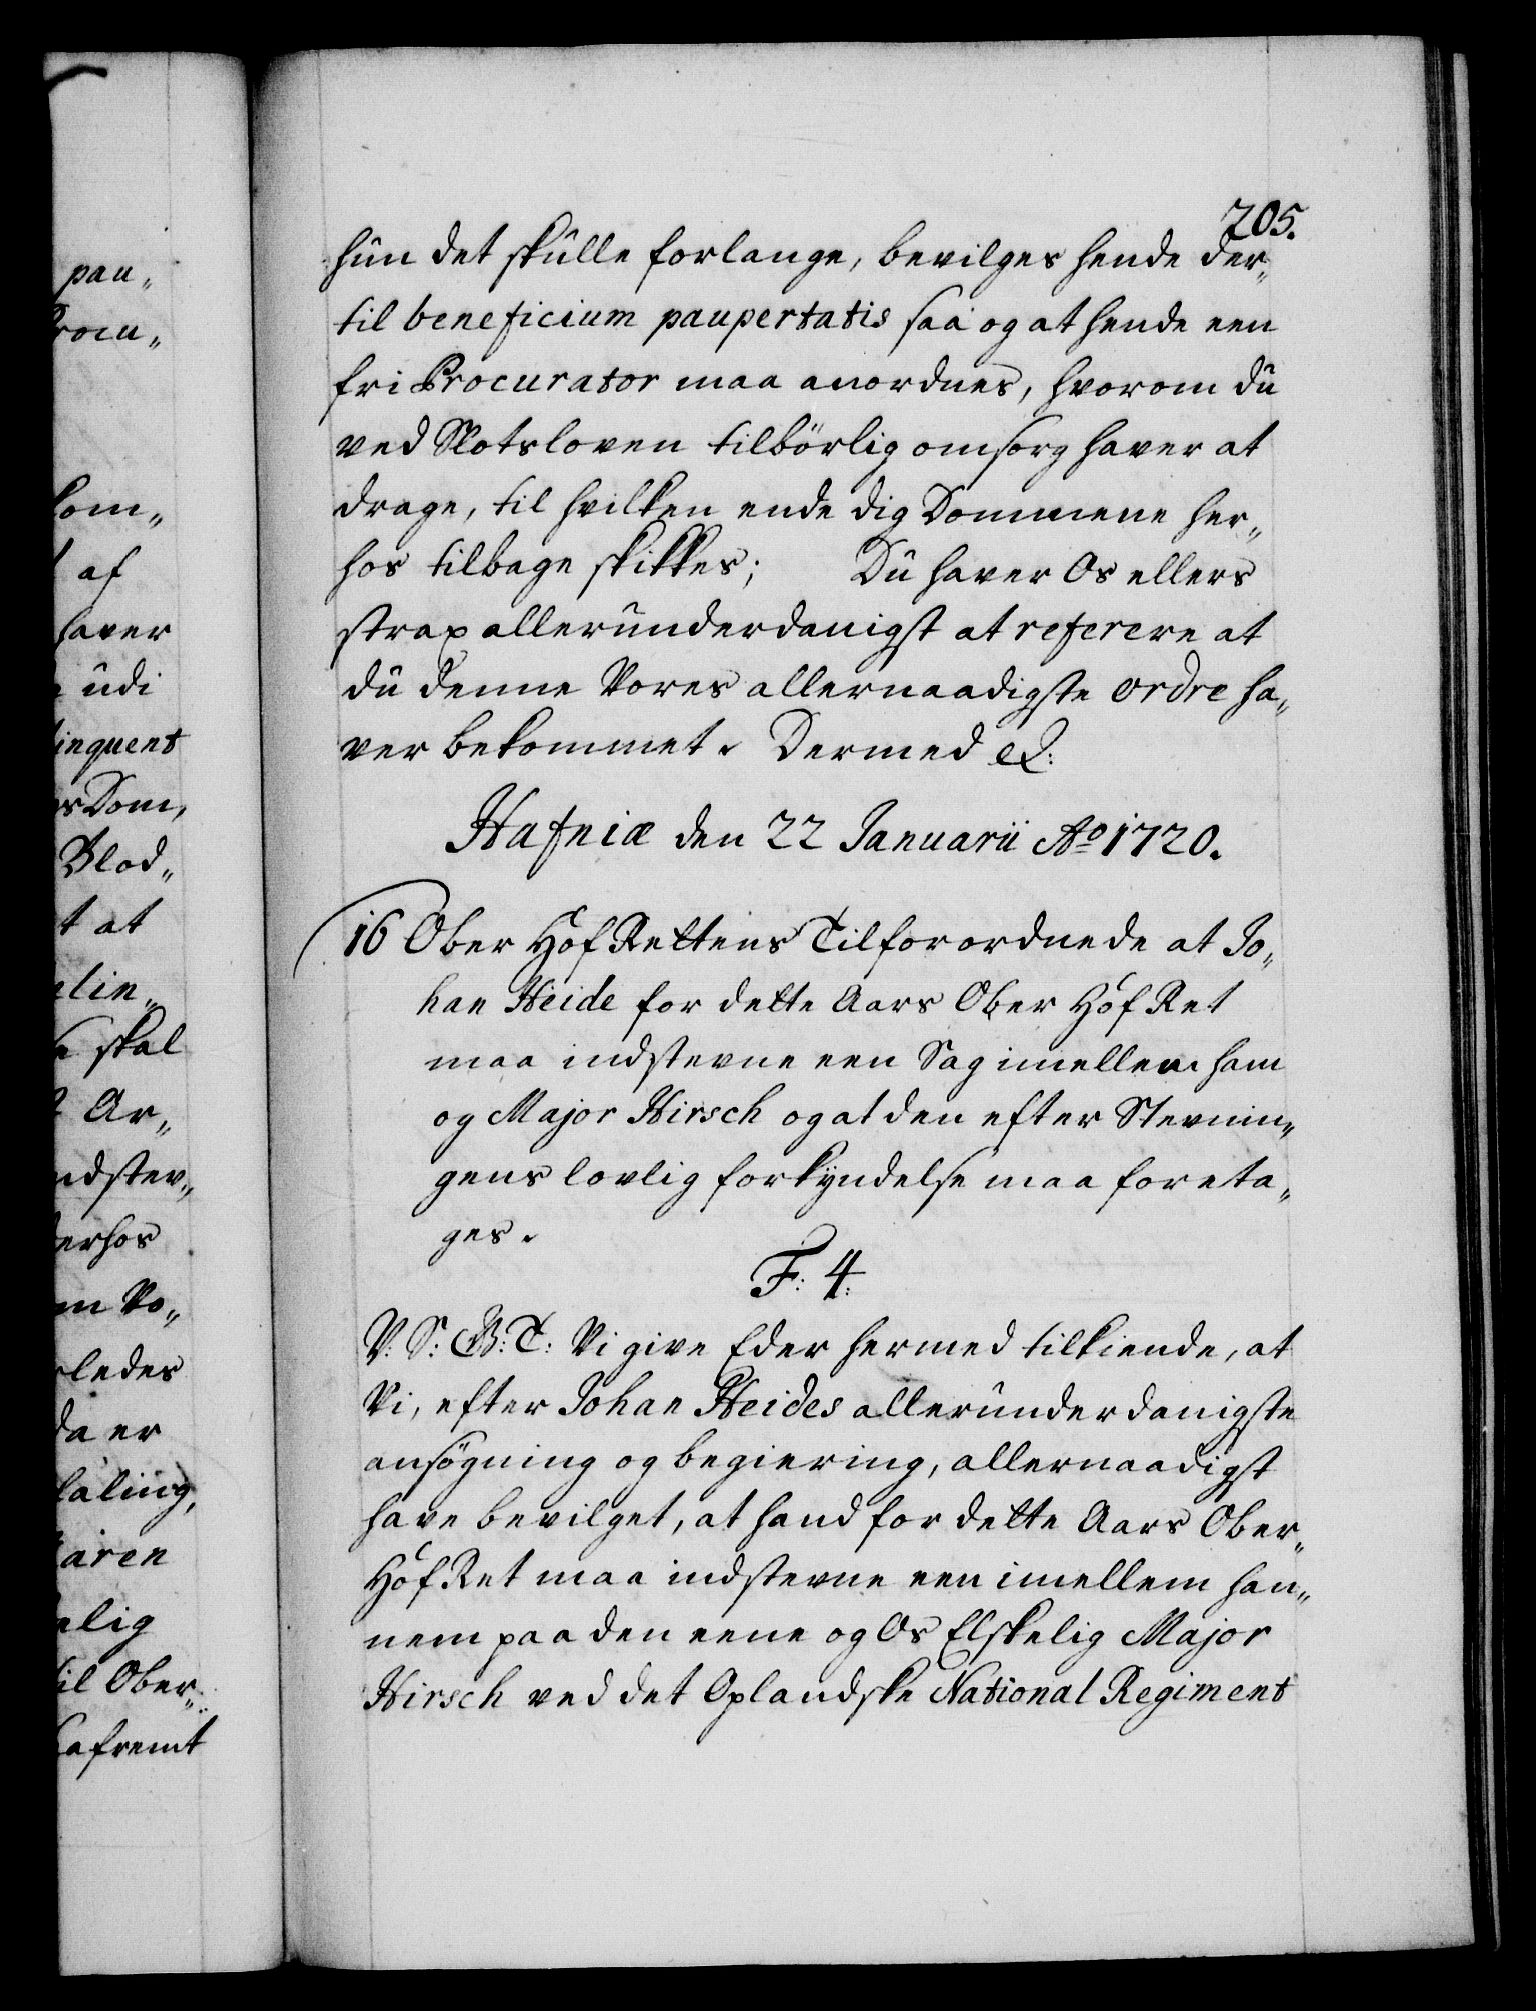 205.
hun det skulle forlange, bevilges hende der„
til beneficium paupertatis saa og at hende een
fri Procurator maa anordnes, hvorom du
ved Slotsloven tilbörlig omsorg haver at
drage, til hvilken ende dig Dommene her„
hos tilbage skikkes; Du haver Os ellers
strax allerunderdanigst at referere at
du denne Vores allernaadigste ordre ha„
ver bekommet. Dermed etc:
Hafniæ den 22 Januarii Ao 1720.
16 Ober Hof Rettens Tilforordnede at Jo„
han Heide for dette Aars Ober Hof Ret
maa indstevne een Sag imellem ham
og Major Hirsch og at den efter Stevnin„
gens lovlig forkyndelse maa foreta„
ges.
F: 4:
V: S: G: T: Vi give Eder hermed tilkiende, at
Vi, efter Johan Heides allerunderdanigste
ansögning og begiering, allernaadigst
have bevilget, at hand for dette Aars Ober„
Hof Ret maa indstevne een imellem han„
nem paa den eene og Os Elskelig Major
Hirsch ved det Oplandske National Regiment
pau„
rocu„
kom„
af
haver
udi
inquent
s Dom,
Blod„
t at
elin„
skal
Ar„
ndstev„
derhos
m Vo„
ledes
da er
taling,
aren
elig
til Ober„
afremt